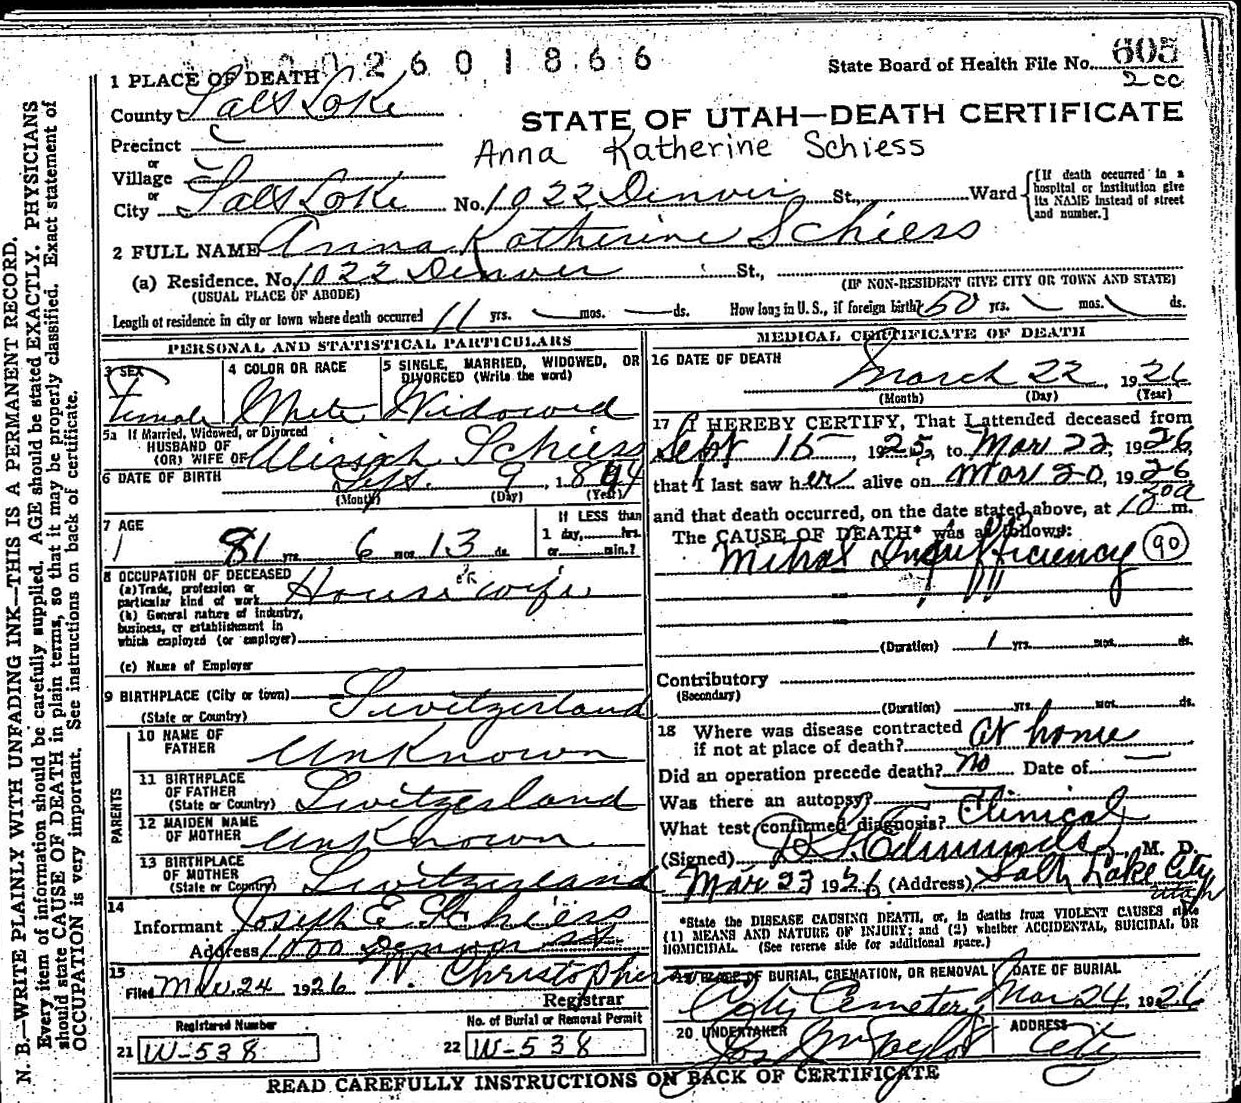 2601866
State Board of Health File No. 605
2cc
1 PLACE OF DEATH
County Salt Lake
STATE OF UTAH—DEATH CERTIFICATE
Precinct
Anna Katherine Schiess
or
Village
or
City Salt Lake No. 1022 Denver St., Ward
[If death occurred in a hospital or institution give its NAME instead of street and number.]
2 FULL NAME Anna Katherine Schiess
(a) Residence. No. 1022 Denver St.,
(USUAL PLACE OF ABODE) (IF NON-RESIDENT GIVE CITY OR TOWN AND STATE)
Length of residence in city or town where death occurred 11 yrs. mos. ds. How long in U. S., if foreign birth? 50 yrs. mos. ds.
PERSONAL AND STATISTICAL PARTICULARS
3 SEX
Female
4 COLOR OR RACE
White
5 SINGLE, MARRIED, WIDOWED, OR DIVORCED (Write the word)
Widowed
5a If Married, Widowed, or Divorced
HUSBAND OF
(OR) WIFE OF Schiess
6 DATE OF BIRTH Sept. 9, 1844
(Month) (Day) (Year)
7 AGE
81 yrs. 6 mos. 13 ds.
If LESS than
1 day, hrs.
or min.?
8 OCCUPATION OF DECEASED
(a) Trade, profession or
particular kind of work Housewife
(b) General nature of industry,
business, or establishment in
which employed (or employer)
(c) Name of Employer
9 BIRTHPLACE (City or town)
(State or Country) Switzerland
PARENTS
10 NAME OF
FATHER Unknown
11 BIRTHPLACE
OF FATHER
(State or Country) Switzerland
12 MAIDEN NAME
OF MOTHER Unknown
13 BIRTHPLACE
OF MOTHER
(State or Country) Switzerland
14
Informant Joseph E Schiess
Address 1000 Denver St
15
Filed Mar. 24 1926 W. Christopherson
Registrar
Registered Number
21 W-538
No. of Burial or Removal Permit
22 W-538
MEDICAL CERTIFICATE OF DEATH
16 DATE OF DEATH
March 22, 1926
(Month) (Day) (Year)
17 I HEREBY CERTIFY, That I attended deceased from
Sept 15, 1925, to Mar 22, 1926,
that I last saw her alive on Mar 20, 1926
and that death occurred, on the date stated above, at m.
The CAUSE OF DEATH* was as follows:
Mitral Insufficiency (90)
(Duration) 1 yrs. mos. ds.
Contributory
(Secondary)
(Duration) yrs. mos. ds.
18 Where was disease contracted
if not at place of death? At home
Did an operation precede death? No Date of
Was there an autopsy?
What test confirmed diagnosis? Clinical
(Signed) Edmunds, M. D.
Mar 23 1926 (Address) Salt Lake City
Utah
*State the DISEASE CAUSING DEATH, or, in deaths from VIOLENT CAUSES state
(1) MEANS AND NATURE OF INJURY; and (2) whether ACCIDENTAL, SUICIDAL OR
HOMICIDAL. (See reverse side for additional space.)
19 PLACE OF BURIAL, CREMATION, OR REMOVAL
City Cemetery
DATE OF BURIAL
Mar 24, 1926
20 UNDERTAKER
Jos Wm Taylor
ADDRESS
City
READ CAREFULLY INSTRUCTIONS ON BACK OF CERTIFICATE
N. B.—WRITE PLAINLY WITH UNFADING INK—THIS IS A PERMANENT RECORD.
Every item of information should be carefully supplied. AGE should be stated EXACTLY. PHYSICIANS
should state CAUSE OF DEATH in plain terms, so that it may be properly classified. Exact statement of
OCCUPATION is very important. See instructions on back of certificate.